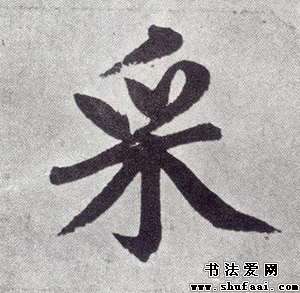 采
书法爱网
www.shufaai.com